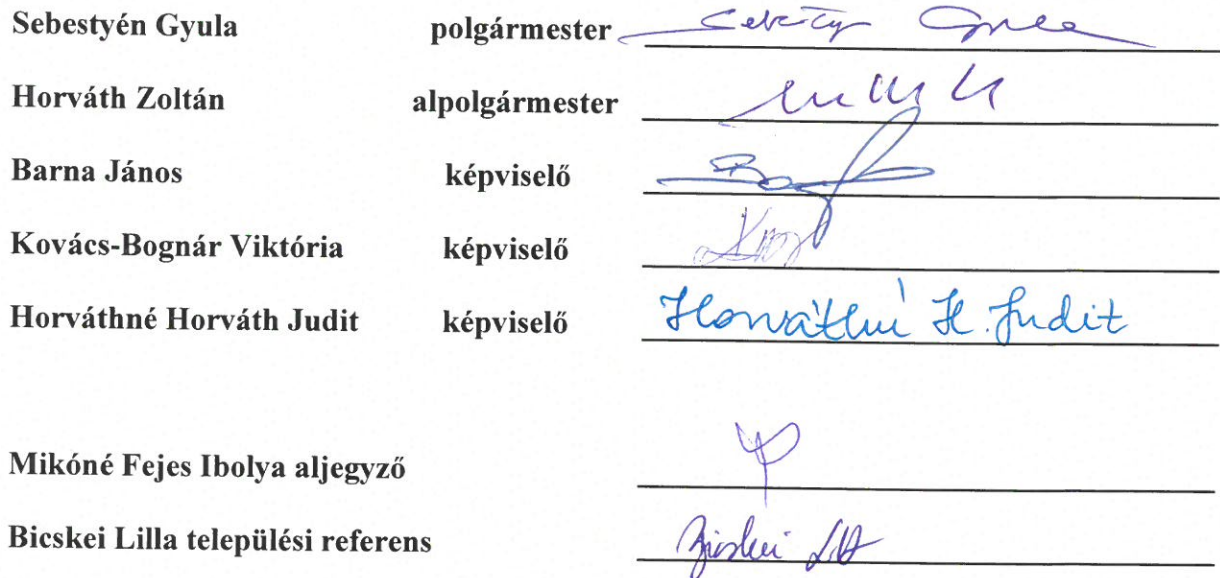 Sebestyén Gyula polgármester
Horváth Zoltán alpolgármester
Barna János képviselő
Kovács-Bognár Viktória képviselő
Horváthné Horváth Judit képviselő Horváthné H. Judit
Mikóné Fejes Ibolya aljegyző
Bicskei Lilla települési referens